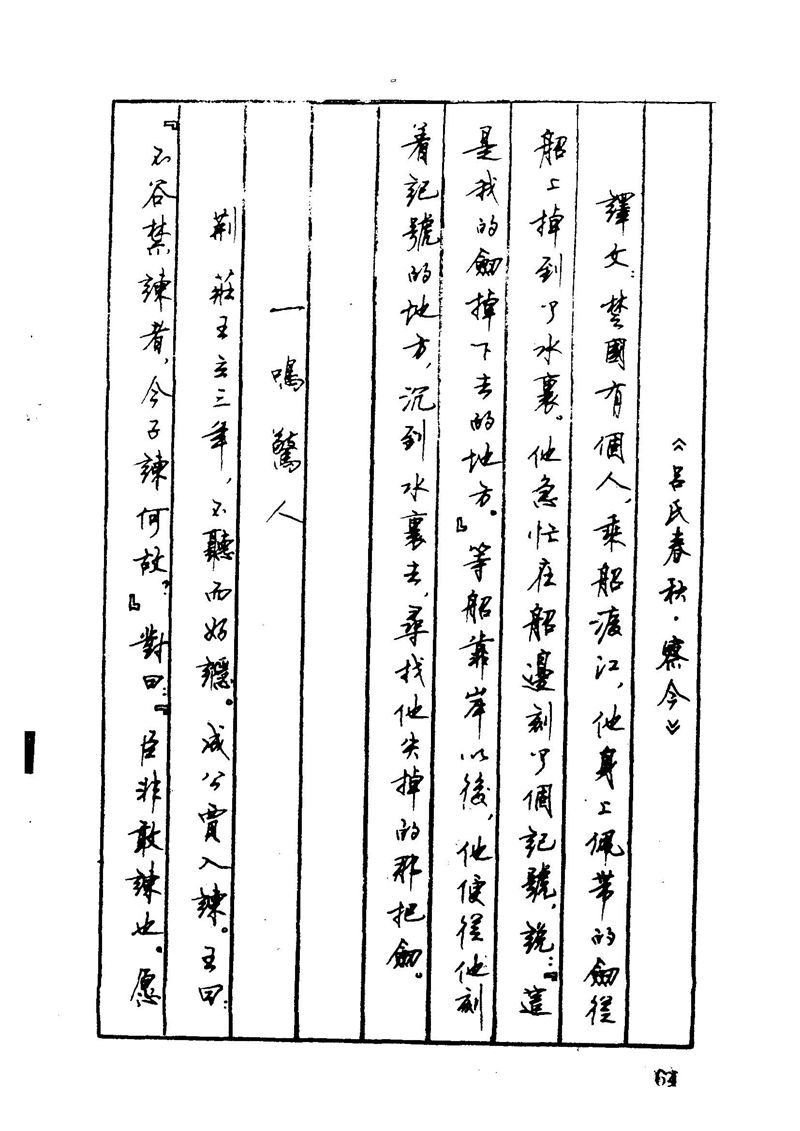 《呂氏春秋·察今》
譯文:楚國有個人,乘船渡江,他身上佩带的劍從
船上掉到了水裏。他急忙在船邊刻了個記號,説:『這
是我的劍掉下去的地方。』等船靠岸以後,他便從他刻
着記號的地方,沉到水裏去,尋找他失掉的那把劍。
一鳴驚人
荆莊王立三年,不聽而好讔。成公賈入諫。王曰:
『不谷禁諫者,今子諫何故?』對曰:『臣非敢諫也。愿